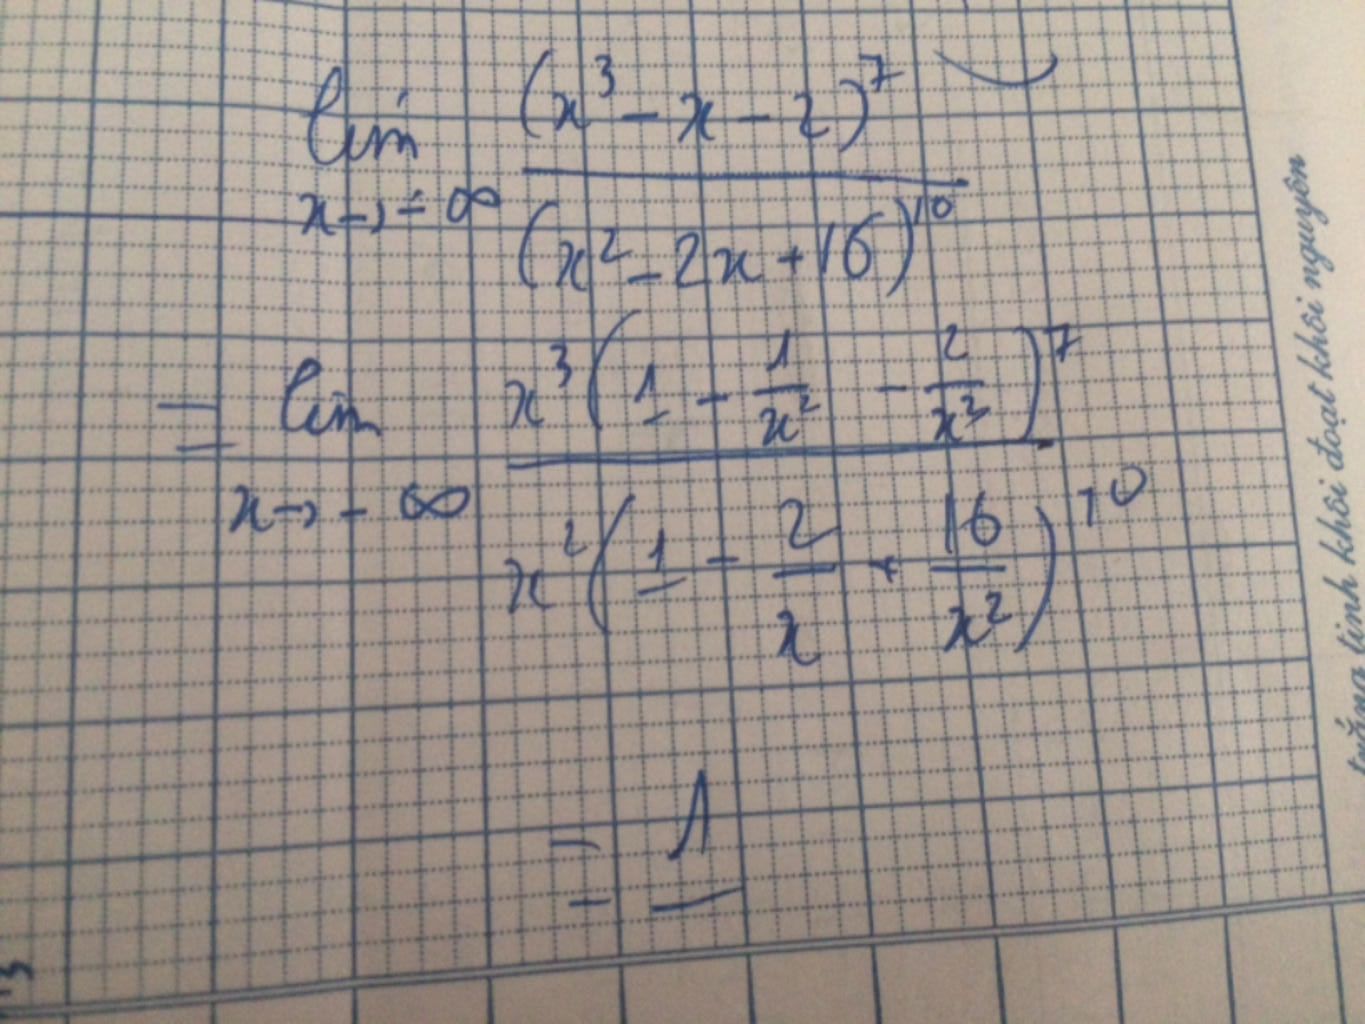 lim (x³ - x - 2)⁷
x→-∞ (x² - 2x + 16)¹⁰
= lim x³(1 - 1/x² - 2/x³)⁷
x→-∞ x²(1 - 2/x + 16/x²)¹⁰
= 1
tính khôi đoạt khôi nguyên